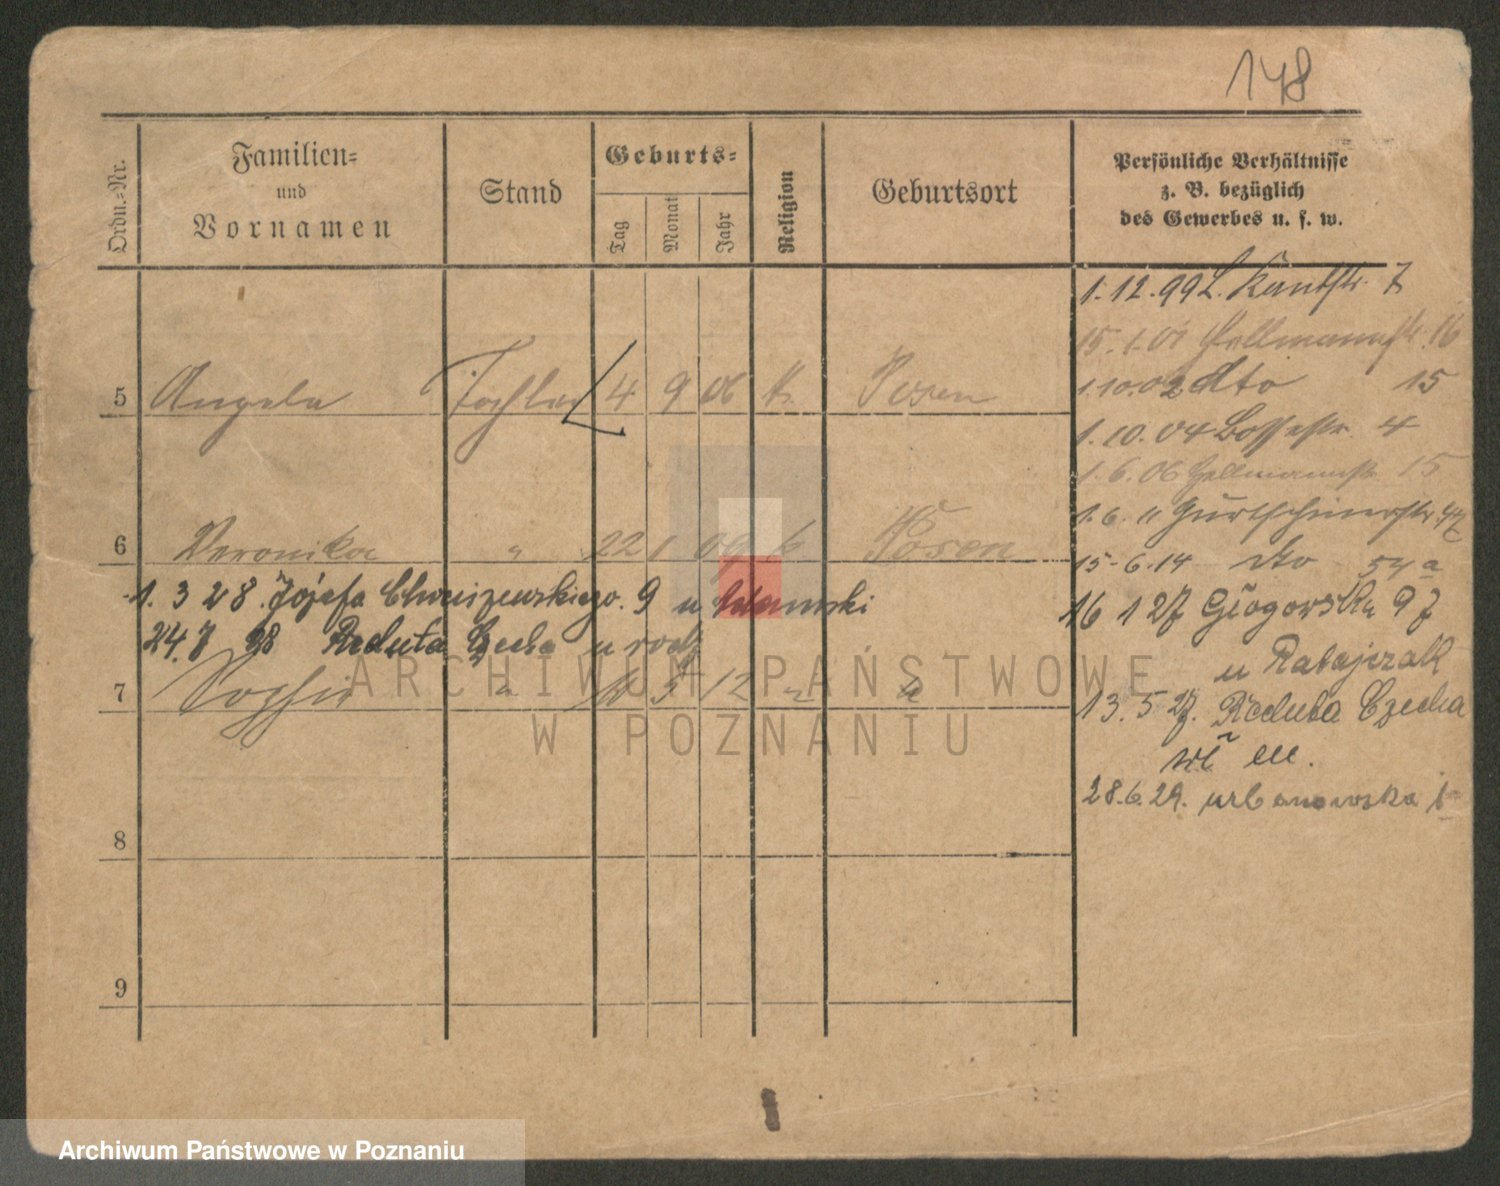 148
Ordn.-Nr.
Familien-
und
Vornamen
Stand
Geburts-
Tag
Monat
Jahr
Religion
Geburtsort
Persönliche Verhältnisse
z. B. bezüglich
des Gewerbes u. s. w.
1. 12. 99 L. Kantstr. 7
15. 1. 01 Hellmannstr. 16
1. 10. 02 dto 15
1. 10. 04 Bossestr. 4
1. 6. 06 Hellmannstr. 15
1. 6. 11 Gurtschinerstr.
15. 6. 14 dto 54a
16 1 27 Głogowska 97
u Ratajczak
13. 5. 27. Reduta Czecha
m.
28. 6. 29. urbanowska
5 Angela Tochter 4 9 06 k. Posen
6 Veronika " 22 1 09 k Posen
1. 3 28. Józefa Chociszewskiego. 9 u Adamski
24. 7 28 Reduta Czecha u rodz
7 Sophie " 5 12 " "
8
9
ARCHIWUM PAŃSTWOWE
W POZNANIU
Archiwum Państwowe w Poznaniu